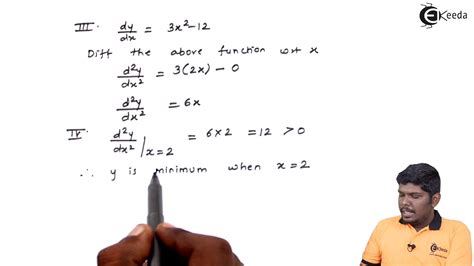 Ekeeda
III. dy/dx = 3x²-12
Diff the above function wrt x
d²y/dx² = 3(2x) - 0
d²y/dx² = 6x
IV. d²y/dx² |x=2 = 6×2 = 12 > 0
∴ y is minimum when x=2
Ekeeda